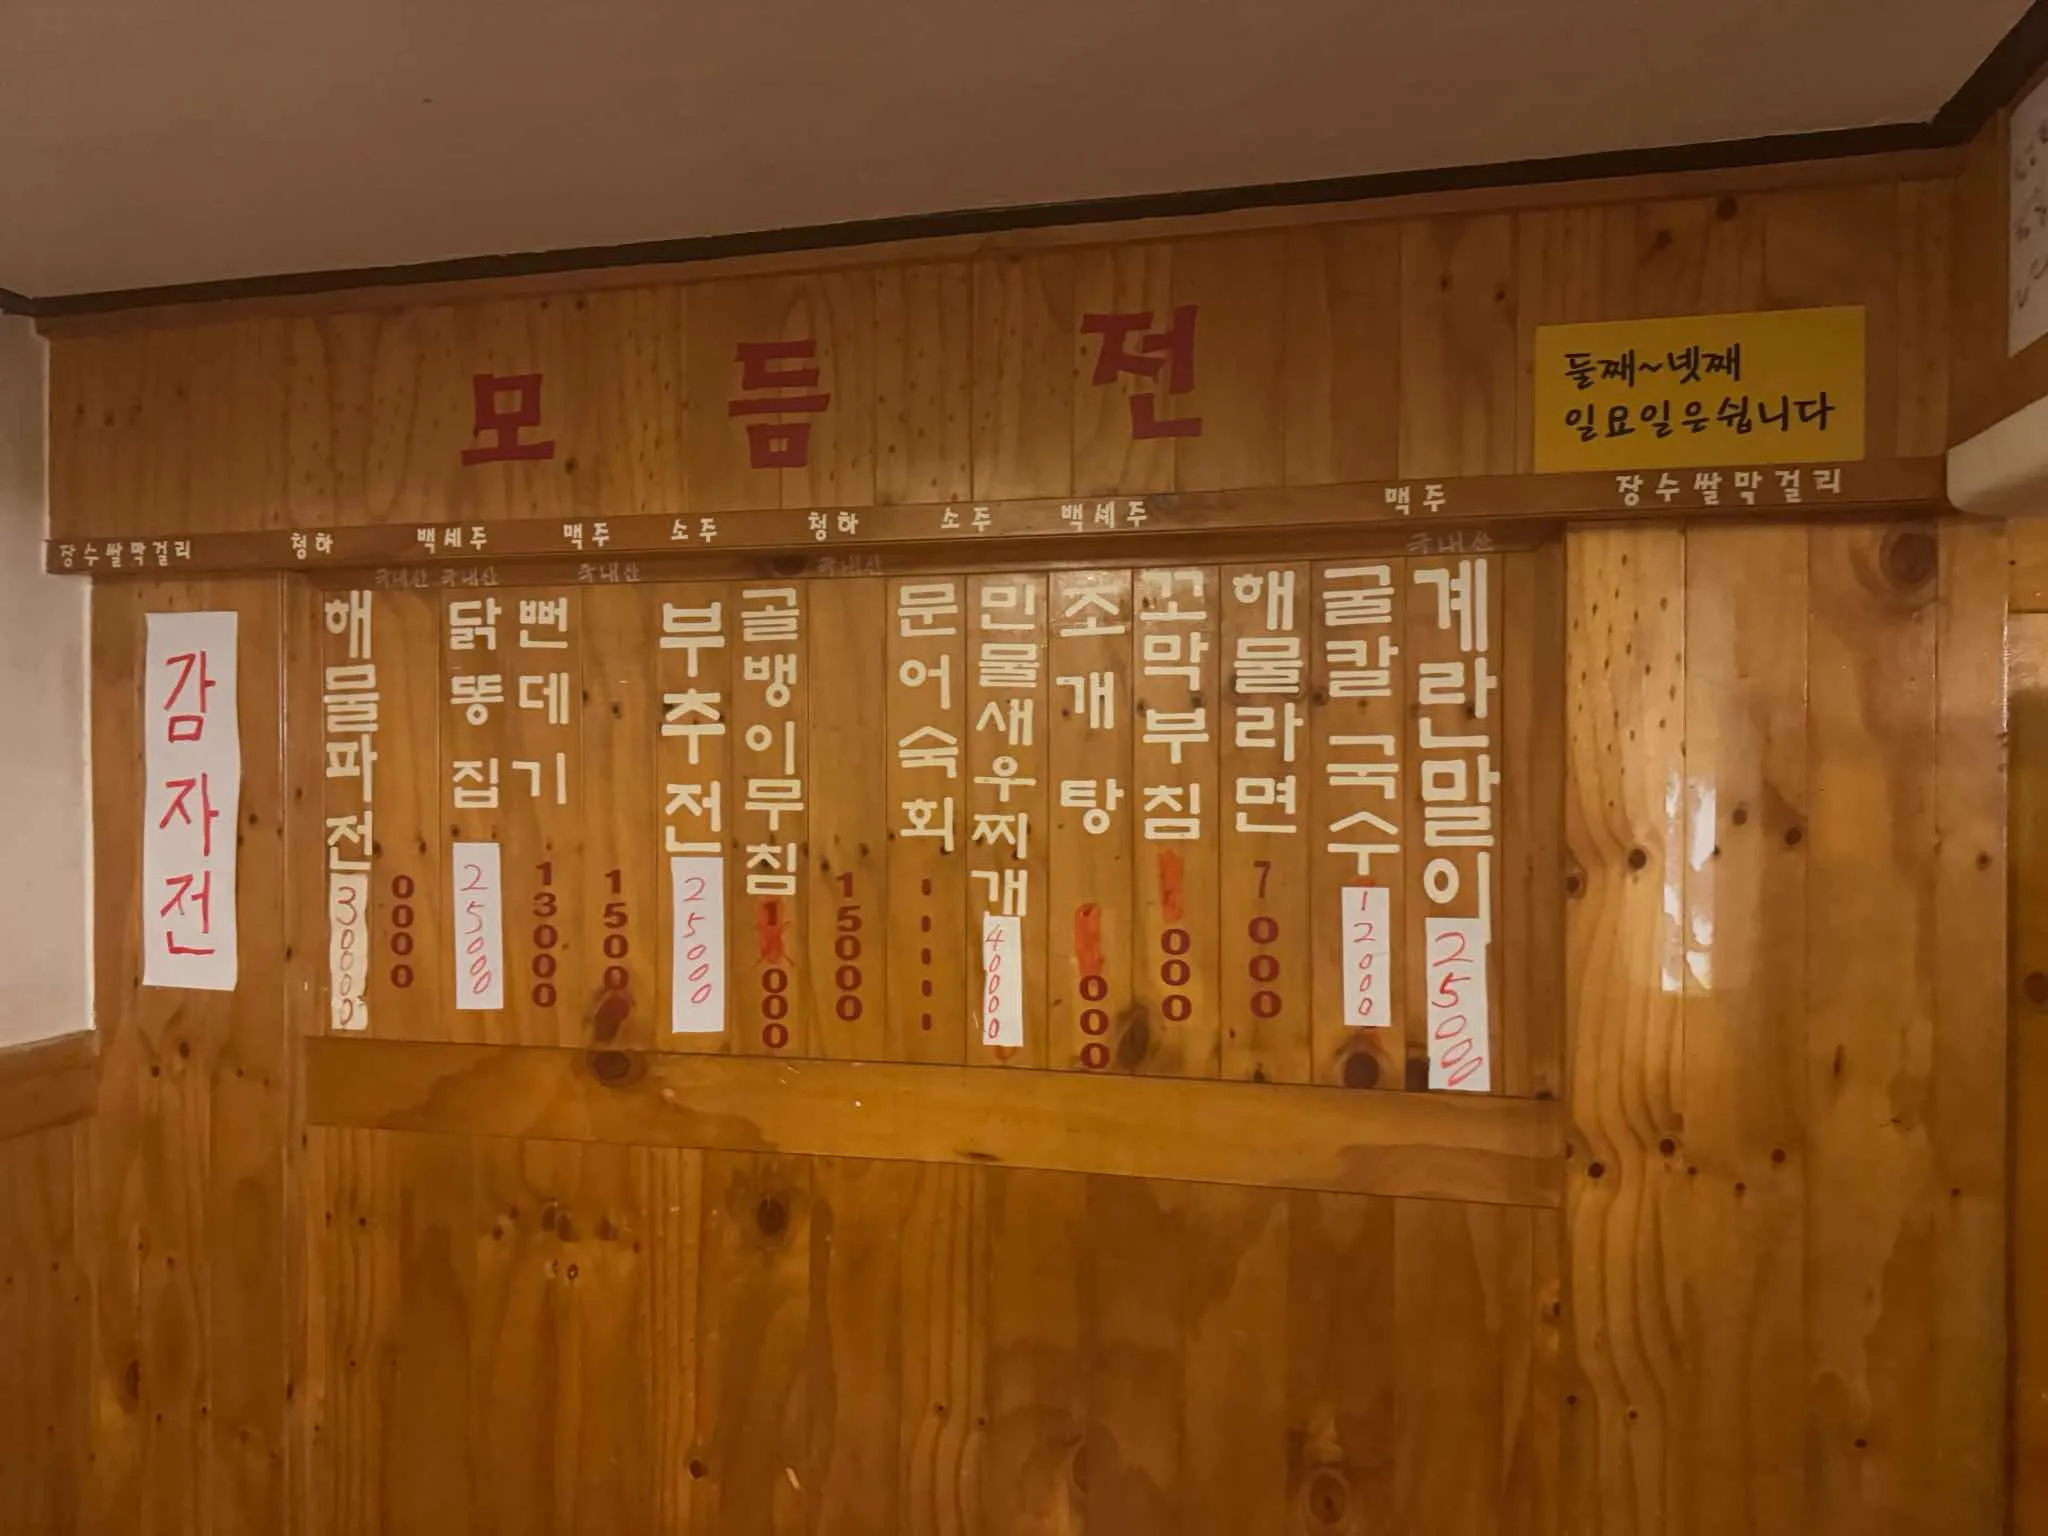 모듬전
둘째~넷째
일요일은쉽니다
장수쌀막걸리 청하 백세주 맥주 소주 청하 소주 백세주 맥주 장수쌀막걸리
국내산 국내산 국내산 국내산 국내산
감자전
해물파전 30000
0000
닭똥집 25000
뻔데기 13000
15000
부추전 25000
골뱅이무침 1 000
15000
문어숙회
민물새우찌개 40000
조개탕 000
꼬막부침 000
해물라면 7000
굴칼국수 12000
계란말이 25000